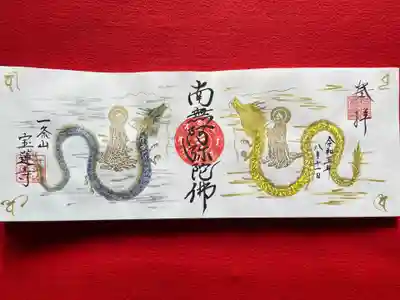 奉拝
令和五年
八月十一日
南無阿弥陀佛
一条山
宝蓮寺